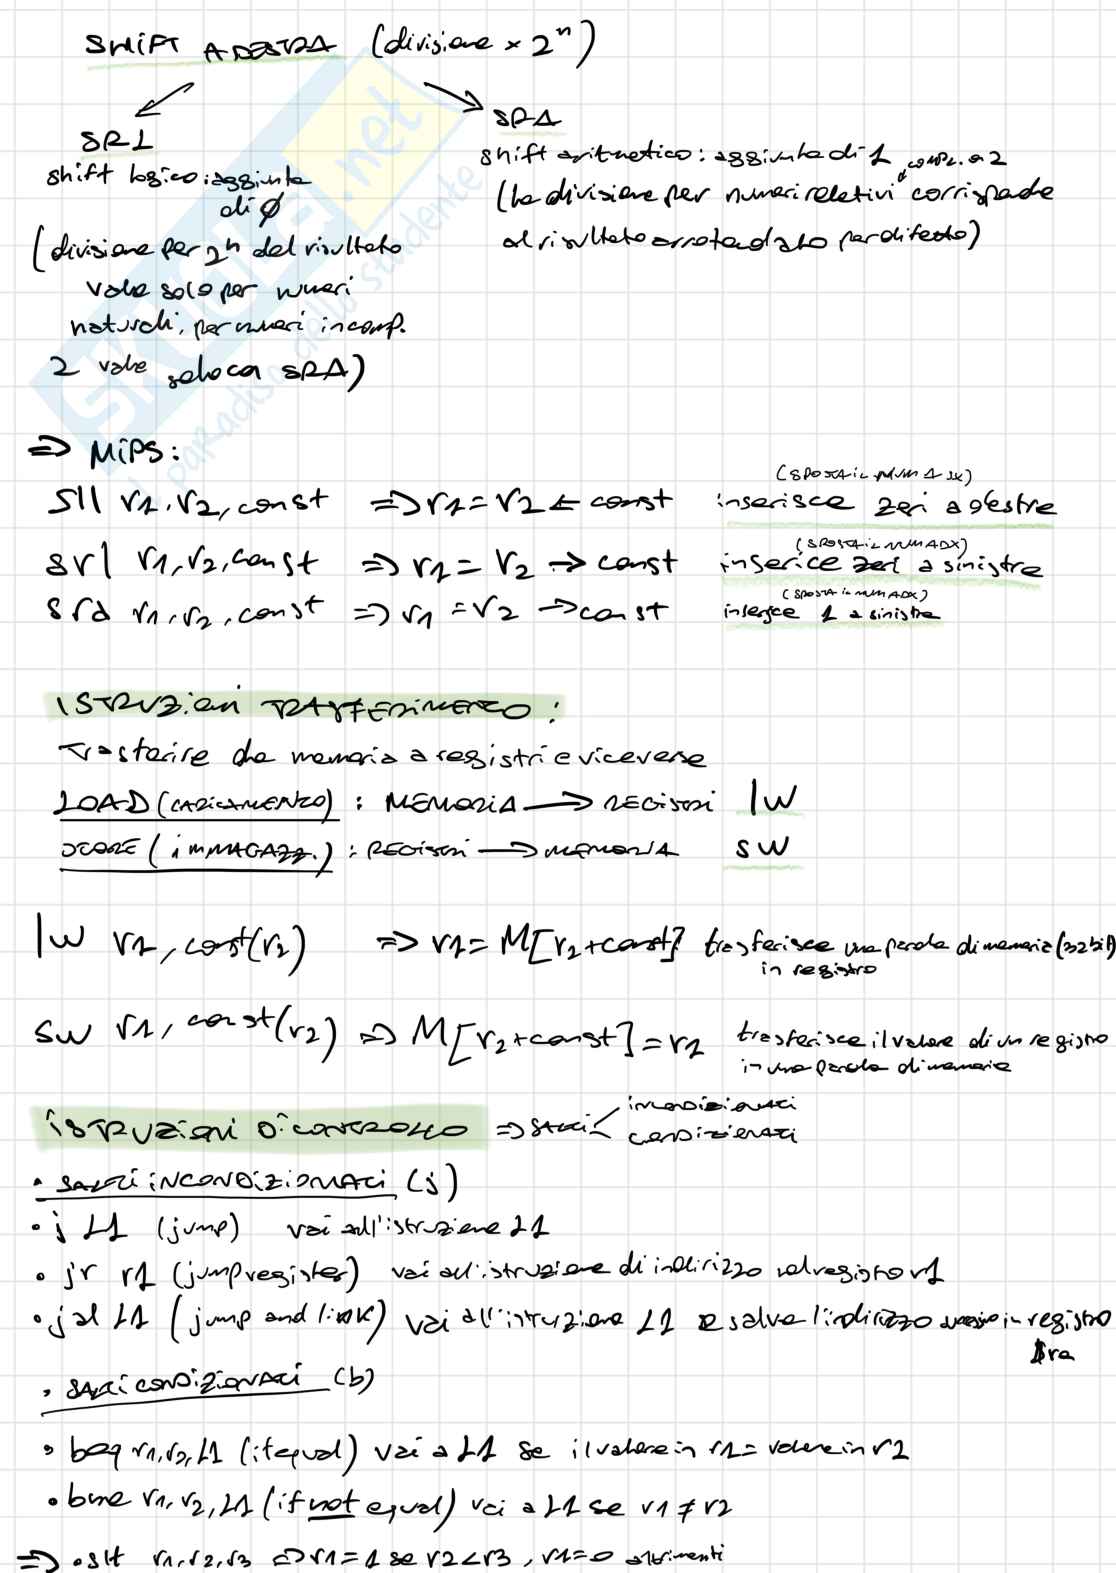 SHIFT A DESTRA (divisione x 2^n)
SRL
shift logico: aggiunta
di Ø
(divisione per 2^n del risultato
vale solo per numeri
naturali, per numeri in comp.
2 vale solo ca SRA)
SRA
shift aritmetico: aggiunta di 1 comp. a 2
(la divisione per numeri relativi corrisponde
al risultato arrotondato per difetto)
⇒ MIPS:
(SPOSTA IL NUM A SX)
sll r1, r2, const ⇒ r1 = r2 ← const inserisce zeri a destra
(SPOSTA IL NUM A DX)
srl r1, r2, const ⇒ r1 = r2 → const inserice zeri a sinistra
(SPOSTA IL NUM A DX)
sra r1, r2, const ⇒ r1 = r2 → const inserisce 1 a sinistra
ISTRUZIONI TRASFERIMENTO:
Trasferire da memoria a registri e viceversa
LOAD (CARICAMENTO): MEMORIA → REGISTRI lw
STORE (IMMAGAZZ.): REGISTRI → MEMORIA sw
lw r1, const(r2) ⇒ r1 = M[r2+const] trasferisce una parola di memoria (32 bit)
in registro
sw r1, const(r2) ⇒ M[r2+const] = r1 trasferisce il valore di un registro
in una parola di memoria
ISTRUZIONI DI CONTROLLO ⇒ SALTI < incondizionati
condizionati
• SALTI INCONDIZIONATI (j)
• j L1 (jump) vai all'istruzione L1
• jr r1 (jump register) vai all'istruzione di indirizzo nel registro r1
• jal L1 (jump and link) vai all'istruzione L1 e salva l'indirizzo successivo in registro
$ra
• SALTI CONDIZIONATI (b)
• beq r1, r2, L1 (if equal) vai a L1 se il valore in r1 = valore in r2
• bne r1, r2, L1 (if not equal) vai a L1 se r1 ≠ r2
⇒ • slt r1, r2, r3 ⇒ r1 = 1 se r2 < r3, r1 = 0 altrimenti
SKUOLA.net
il paradiso dello studente